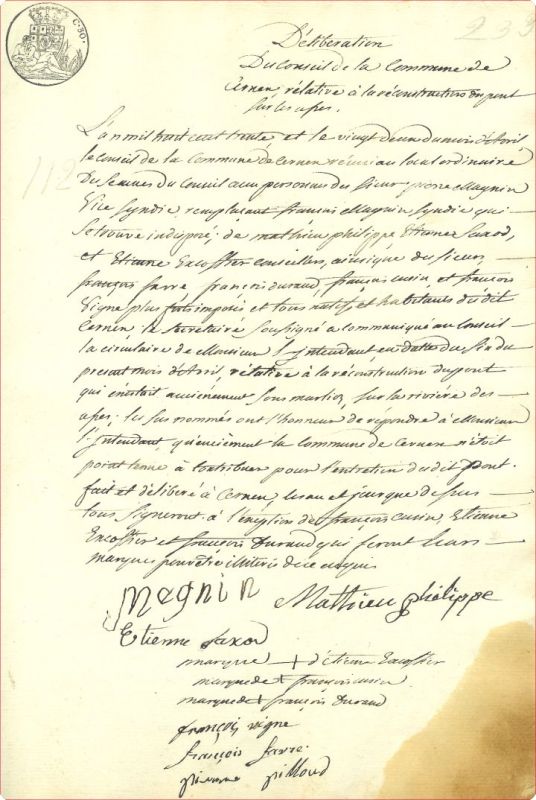 C. 30.
233
Délibération
Du Conseil de la Commune de
Cernen, rélative à la réconstruction du pont
sur les uses.
112
L'an mil huit cent trente, et le vingt deux du mois d'Avril
le Conseil de la Commune de Cernen réuni au local ordinaire
Des séances du Conseil aux personnes des Sieur pierre Magnin
Vice Syndic remplaçant françois Magnin Syndic qui
se trouve indisposé; de mathieu philippe Etienne Saxod,
et Etienne Excoffier Conseillers, ainsi que du Sieur
françois favre francois duraud, françois cusin et françois
Vigne plus forts imposés et tous natifs et habitants du dit
Cernen, le Secrétaire Soussigné a communiqué au Conseil
la circulaire de Monsieur l'jntendant en datte du six du
présent mois d'Avril, rélative à la réconstruction du pont
qui éxistait anciennement sous marlioz, sur la rivière des
uses: les sus nommés ont l'honneur de répondre à Monsieur
l'jntendant, qu'enciément la commune de Cernen n'était
point tenue à contribuer pour l'entretien du dit pont.
fait et délibéré à Cernen, les an et jour que dessus
tous signeront à l'éxeption de françois cusin, Etienne
Excoffier et françois Duraud qui feront leurs
marques pour être illitérés de ce enquis
Magnin Mathieu philippe
Etienne Saxod
marque + d'Etienne Excoffier
marque de + françois cusin
marque de + françois Duraud
françois vigne
françois favre
pilloud